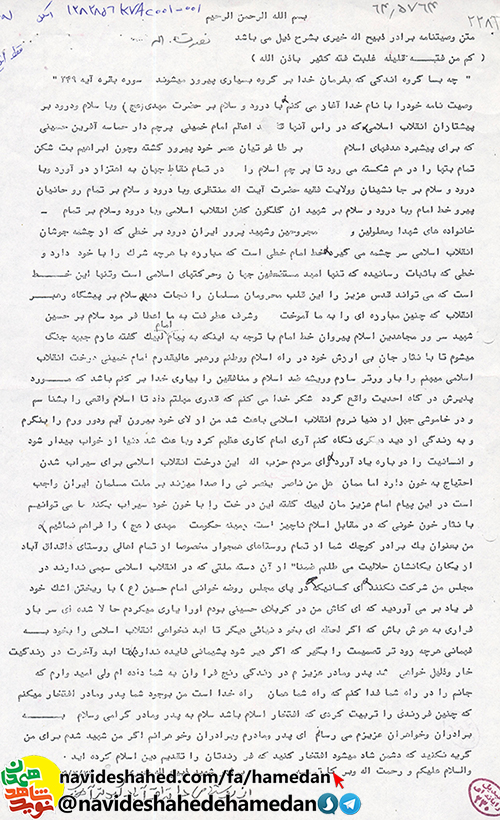 ۶۴/۵/۶۴
بسم الله الرحمن الرحیم
متن وصیتنامه برادر ذبیح اله خیری بشرح ذیل می باشد
( کم من فئـه قلیله غلبت فئه کثیر باذن الله )
" چه بسا گروه اندکی که بفرمان خدا بر گروه بسیاری پیروز میشوند سوره بقره آیه ۲۴۹ "
وصیت نامه خودرا با نام خدا آغاز می کنم با درود و سلام بر حضرت مهدی (عج) وبا سلام ودرود بر
پیشتازان انقلاب اسلامی که در راس آنها اعظم امام خمینی پرچم دار حماسه آفرین حسینی
که برای پیشبرد هدفهای اسلام بر طاغوتیان عصر خود پیروز گشته وچون ابراهیم بت شکن
تمام بتها را در هم شکسته می رود تا پرچم اسلام را در تمام نقاط جهان به اهتزاز در آورد وبا
درود و سلام بر جانشینان وولایت فقیه حضرت آیت اله منتظری وبا درود و سلام بر تمام روحانیان
پیرو خط امام وبا درود و سلام بر شهیدان گلگون کفن انقلاب اسلامی وبا درود وسلام بر تمام
خانواده های شهدا ومعلولین و مجروحین وشهید پرور ایران درود بر خطی که از چشمه جوشان
انقلاب اسلامی سرچشمه می گیرد خط امام خطی است که مبارزه با هرچه شرک را با خود دارد و
خطی که باثبات رسانیده که تنها امید مستضعفین جهان وحرکتهای اسلامی است وتنها این خـــط
است که می تواند قدس عزیز را این قلب محرومان مسلمان را نجات دهد سلام بر پیشگاه رهبـر
انقلاب که چنین مبارزه ای را به ما آموخت وشرف عطوفت به ما اعطا فرمود سلام بر حسین
شهید سرور مجاهدین اسلام پیروان خط امام با توجه به اینکه به پیام امام لبیک گفته عازم جبهه جنگ
میشوم تا با نثار جان بی ارزش خود در راه اسلام ووطنم ورهبر عالیقدرم امام خمینی درخت انقلاب
اسلامی میهنم را بارورتر سازم وریشه ضد اسلام و منافقین را بیاری خدا بر کنم باشد که مــورد
پذیرش درگاه احدیت واقع گردد شکر خدا می کنم که قدری مهلتم داد تا اسلام واقعی را بشناسم
و در خاموشی جهل از دنیا نروم انقلاب اسلامی باعث شد من از لای خود بیرون آیم ودور ورم را بنگرم
و به زندگی از دید دیگری نگاه کنم آری امام کاری عظیم کرد وباعث شد دنیا از خواب بیدار شود
و انسانیت را دوباره یاد آورد وای مردم حزب اله این درخت انقلاب اسلامی برای سیراب شدن
احتیاج به خون دارد اما همان هل من ناصر ینصرنی را صدا میزند بر ملت مسلمان ایران واجب
است در این پیام امام عزیزمان لبیک گفته این درخت را با خون خود سیراب بکند ما می توانیم
با نثار خون خونی که در مقابل اسلام ناچیز است زمینه حکومت مهدی (عج) را فراهم نمائیم
من بعنوان یک برادر کوچک شما از تمام روستاهای همجوار مخصوصا از تمام اهالی روستای داقداق آباد
از یکان یکانشان حلالیت می طلبم ضمنا" از آن دسته ملتی که در انقلاب اسلامی سهمی ندارند در
مجلس من شرکت نکنند ای کسانیکه در پای مجلس روضه خوانی امام حسین (ع) با ریختن اشک خود
فریاد بر می آوردید که ای کاش من در کربلای حسینی بودم اورا یاری میکردم حالا شده ای سرباز
فراری به هوش باش که اگر لحظه ای بخود نیائی دیگر تا ابد نخواهی انقلاب اسلامی را بخود بـــه
فهمانی هرچه زودتر تصمیمت را بگیر که اگر دیر شود پشیمانی فایده ندارد تا ابد وآخرت در زندگیت
خار وذلیل خواهی شد پدر ومادر عزیزم در زندگی رنج فراوان به شما داده ام ولی امید وارم که
جانم را در راه شما فدا کنم که راه شما همان راه خدا است من بوجود شما پدر ومادر افتخار میکنم
که چنین فرزندی را تربیت کردی که افتخار اسلام باشد سلام به پدر ومادر گرامی وسلام بــــه
برادران وخواهران عزیزم می رسانم ای پدر ومادرم وبرادران وخواهرانم اگر من شهید شدم برای من
گریه نکنید که دشمن شاد میشود افتخار کنید که فرزندتان را تقدیم دین اسلام کرده اید .
والسلام علیکم و رحمت اله وبرکاته
navideshahed.com/fa/hamedan
@navideshahedehamedan
نوید شاهد همدان